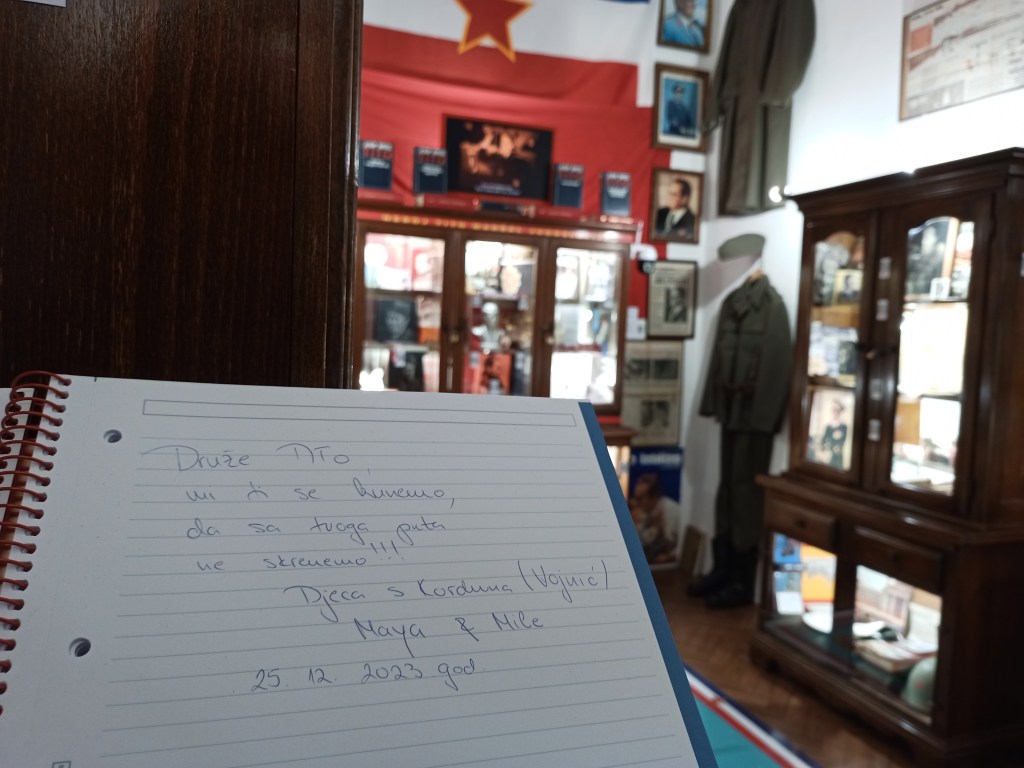 Druže TITO,
mi ti se kunemo,
da sa tvoga puta
ne skrenemo!!!
Djeca s Korduna (Vojnić)
Maya & Mile
25. 12. 2023 god